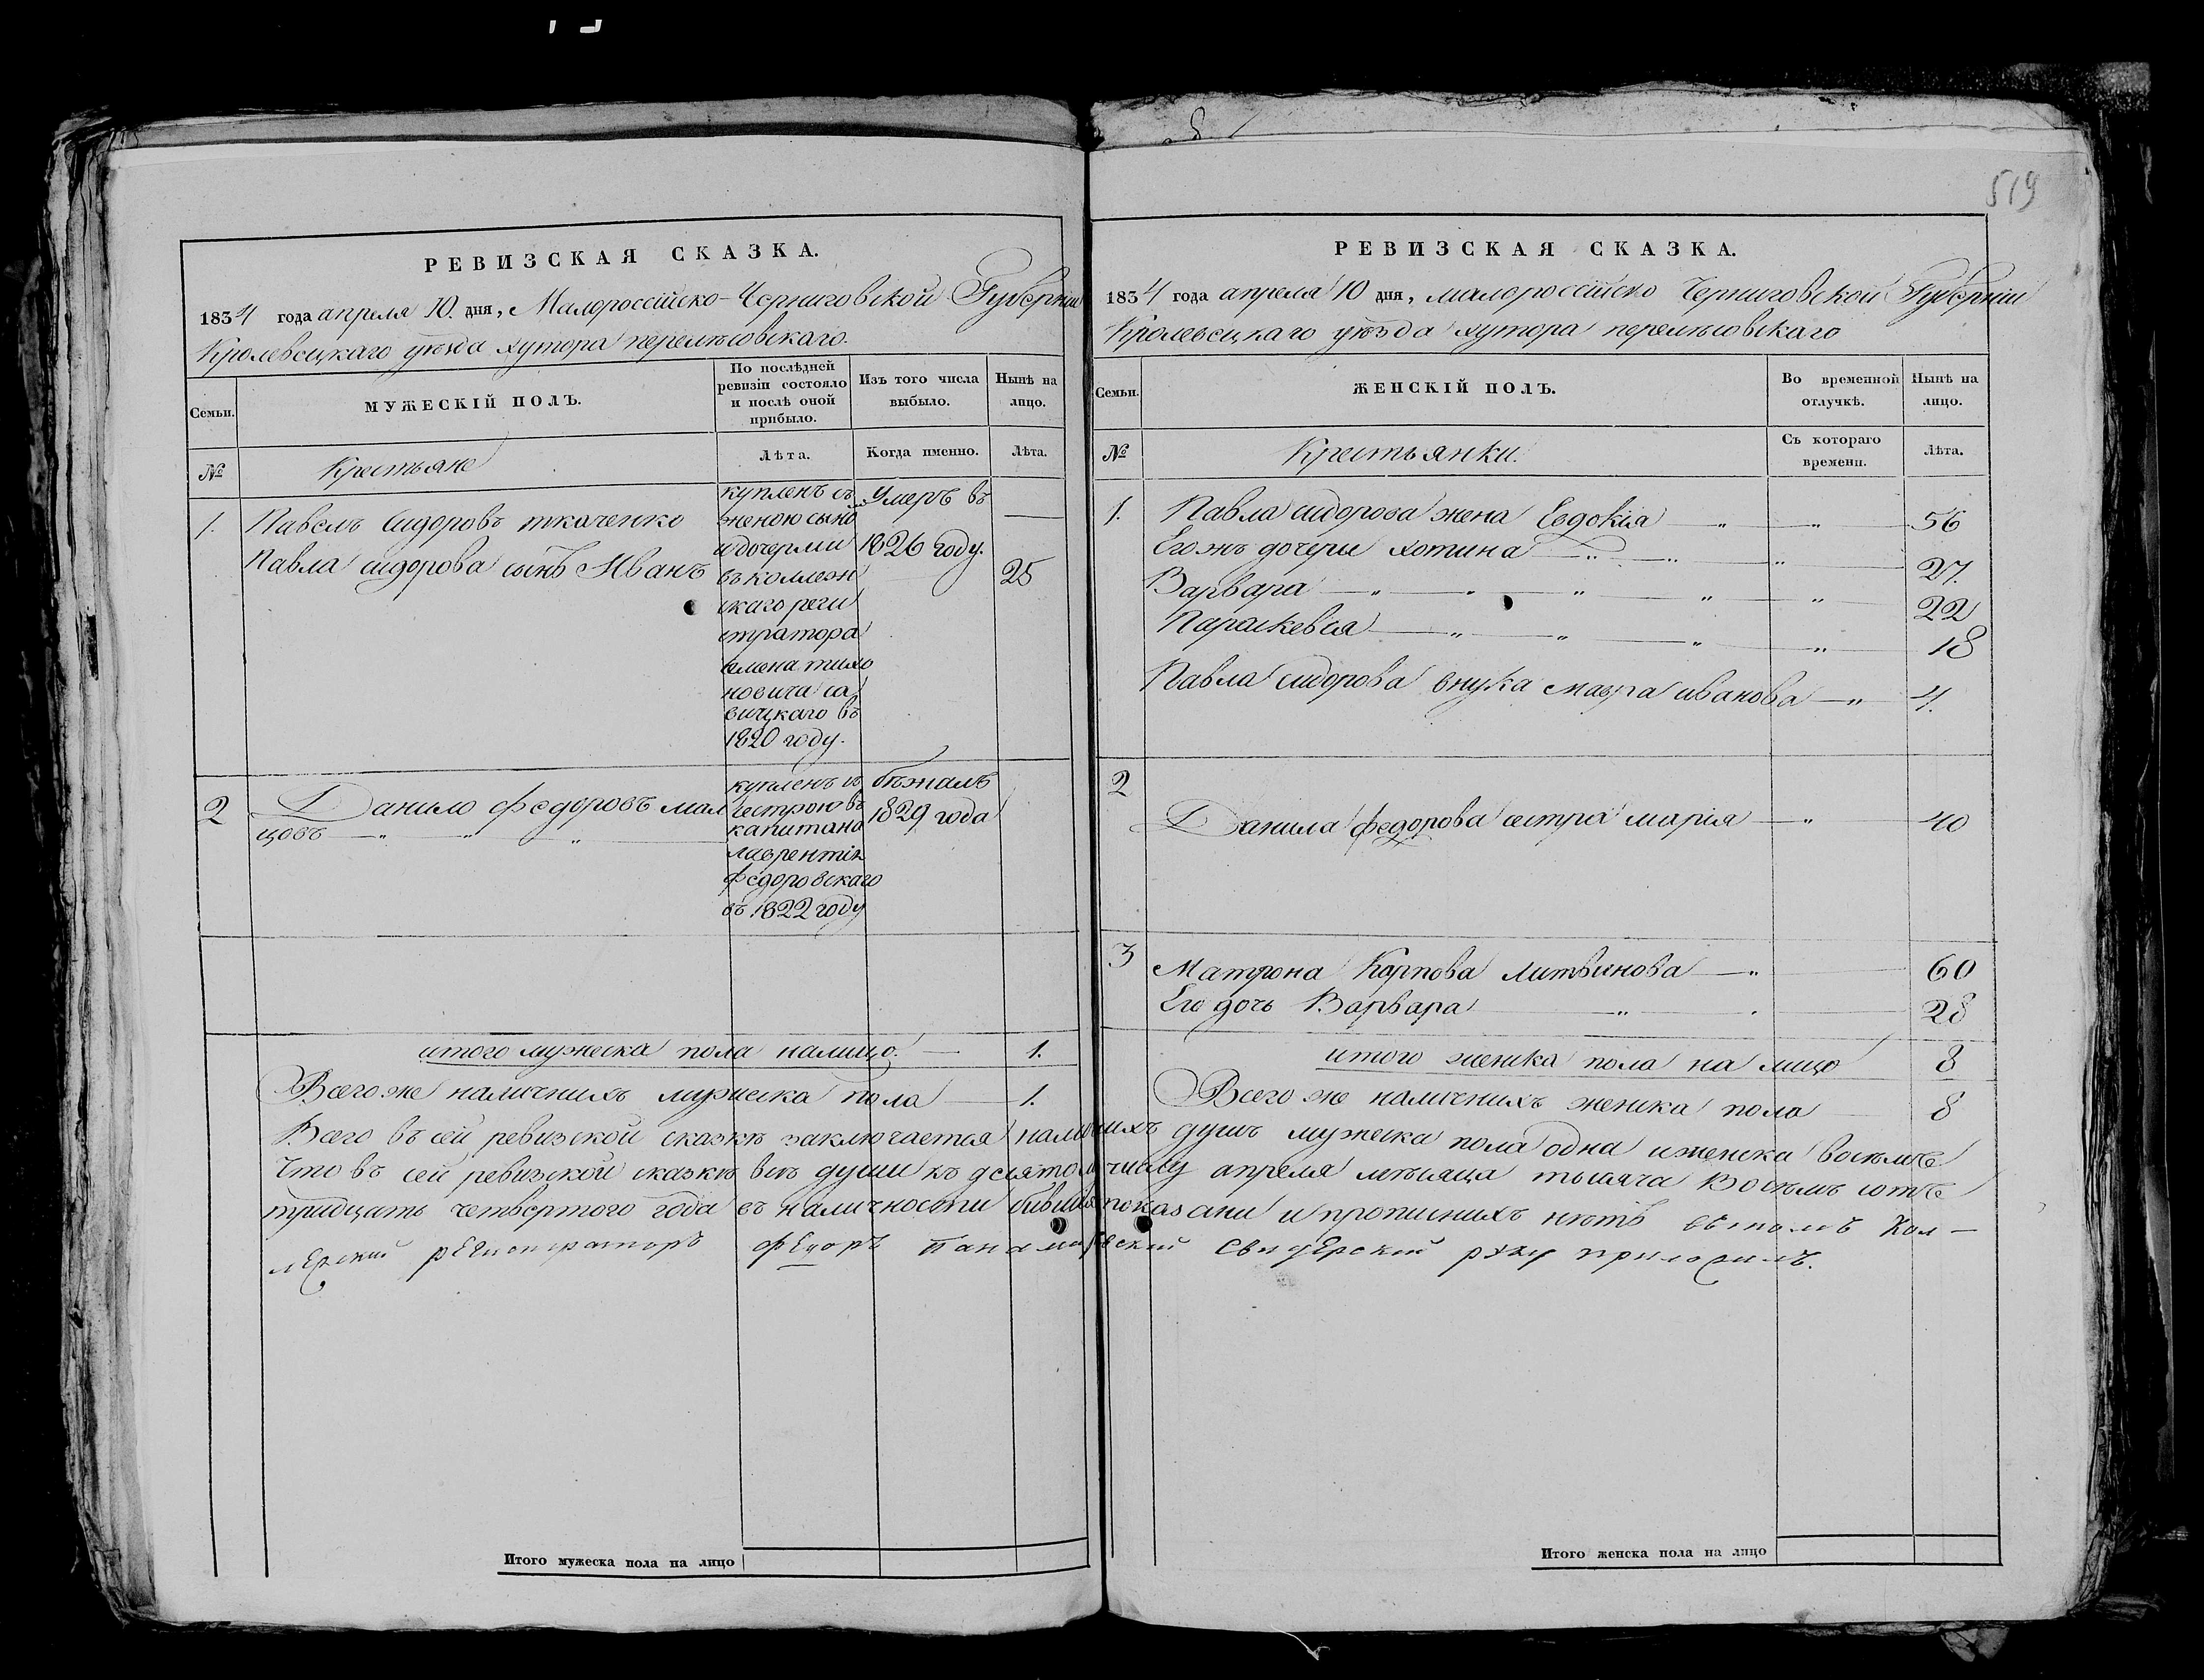 519
РЕВИЗСКАЯ СКАЗКА.
1834 года апреля 10. дня, Малороссійско-Черниговской Губерніи
Кролевецкаго уѣзда хутора перелѣсовскаго.
Семьи.
МУЖЕСКІЙ ПОЛЪ.
По послѣдней
ревизіи состояло
и послѣ оной
прибыло.
Изъ того числа
выбыло.
Нынѣ на
лицо.
№
Крестьяне
Лѣта.
Когда именно.
Лѣта.
1. Павелъ Сидоровъ ткаченко
Павла сидорова сынъ Иванъ
25
купленъ съ
женою сыно
и дочерми
въ коллеж
скаго реги
стратора
семена тихо
новича са
вицкаго въ
1820 году.
Умеръ въ
1826 году.
2 Данило федоровъ мал
цовъ
купленъ съ
сестрою въ
капитана
лаврентія
федоровскаго
въ 1822 году
бѣжалъ
1829 года
итого мужеска пола налицо. 1.
Всего же наличнихъ мужеска пола 1.
РЕВИЗСКАЯ СКАЗКА.
1834 года апреля 10 дня, малороссійско Черниговской Губерніи
Кролевецкаго уѣзда хутора перелѣсовскаго
Семьи.
ЖЕНСКІЙ ПОЛЪ.
Во временной
отлучкѣ.
Нынѣ на
лицо.
№
Крестьянки.
Съ котораго
времени.
Лѣта.
1. Павла сидорова жена Евдокія 56
Его жъ дочери хотина 27.
Варвара 22
Параскевія 18
Павла сидорова внука мавра иванова 4.
2
Данила федорова сестра марія 40
3
Матрона Карпова Литвинова 60
Ею дочь Варвара 28
итого женска пола на лицо 8
Всего же наличнихъ женска пола 8
Всего въ сей ревизской сказкѣ заключается наличнихъ душъ мужеска пола одна и женска восемъ
Что въ сей ревизской сказкѣ всѣ души къ десятому числу апреля мѣсяца тысяча Восѣмъ сотъ
тридцать четвертого года въ наличности бившія показани и прописнихъ нѣтъ въ томъ Кол-
лежский рЕгистраторъ фЕдоръ СвидЕрской руку приложилъ.
Итого мужеска пола на лицо
Итого женска пола на лицо